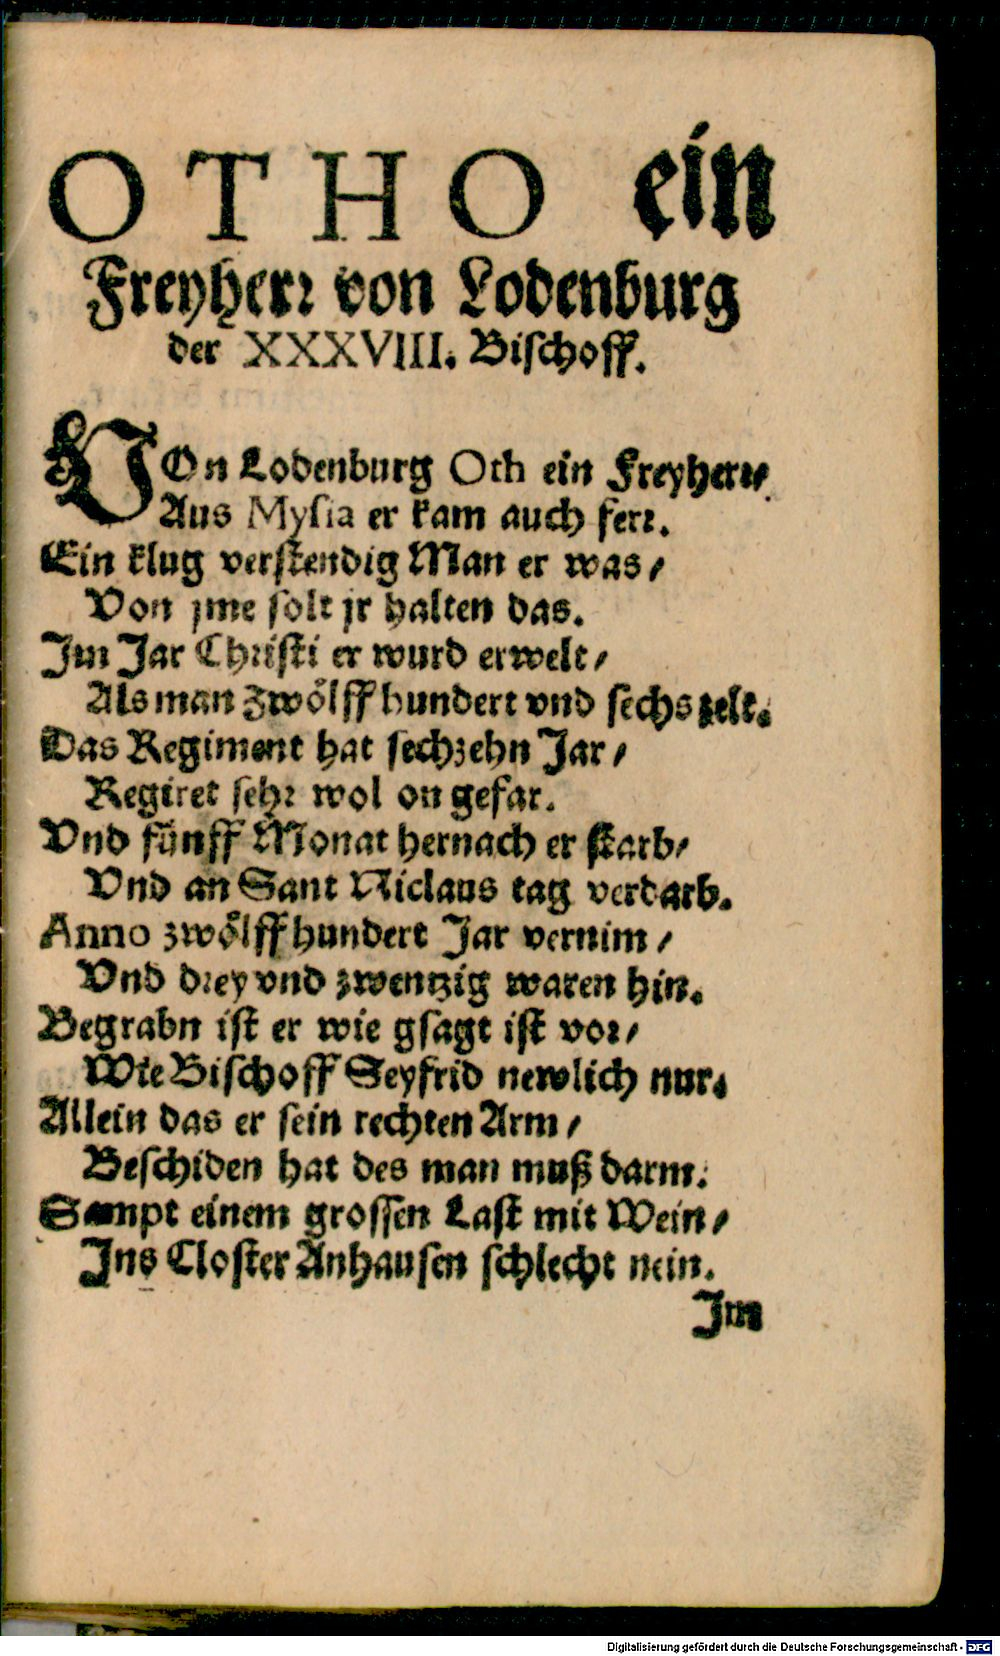 OTHO ein
Freyherr von Lodenburg
der XXXVIII. Bischoff.
VOn Lodenburg Oth ein Freyherr/
Aus Mysia er kam auch ferr.
Ein klug verstendig Man er was/
Von jme solt jr halten das.
Im Jar Christi er wurd erwelt/
Als man zwölff hundert vnd sechs zelt.
Das Regiment hat sechzehn Jar/
Regiret sehr wol on gefar.
Vnd fünff Monat hernach er starb/
Vnd an Sant Niclaus tag verdarb.
Anno zwölff hundert Jar vernim/
Vnd drey vnd zwentzig waren hin.
Begrabn ist er wie gsagt ist vor/
Wie Bischoff Seyfrid newlich nur.
Allein das er sein rechten Arm/
Beschiden hat des man muß darm.
Sampt einem grossen Last mit Wein/
Ins Closter Anhausen schlecht nein.
Im
Digitalisierung gefördert durch die Deutsche Forschungsgemeinschaft - DFG